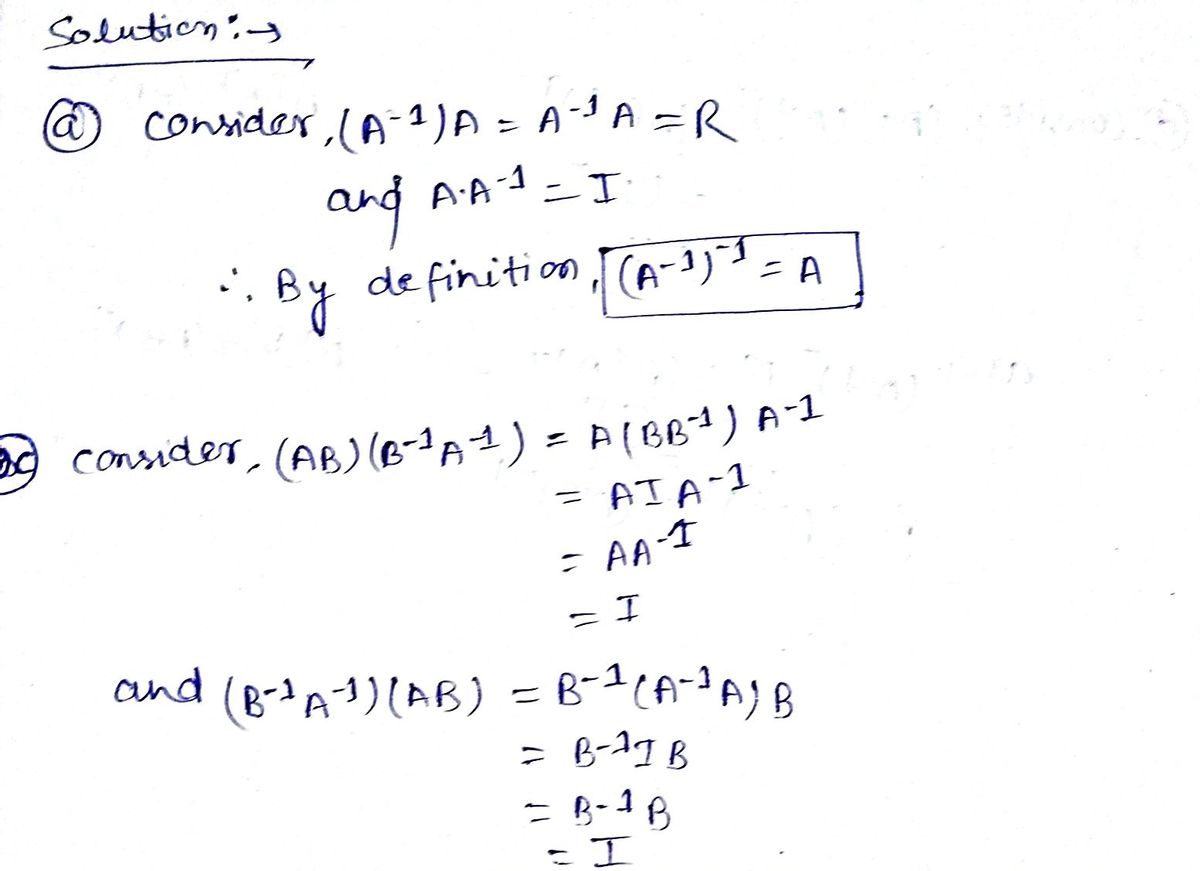 Solution:→
(a) consider, (A⁻¹)A = A⁻¹A = R
and A·A⁻¹ = I
∴ By definition, (A⁻¹)⁻¹ = A
consider, (AB)(B⁻¹A⁻¹) = A(BB⁻¹)A⁻¹
= AIA⁻¹
= AA⁻¹
= I
and (B⁻¹A⁻¹)(AB) = B⁻¹(A⁻¹A)B
= B⁻¹IB
= B⁻¹B
= I